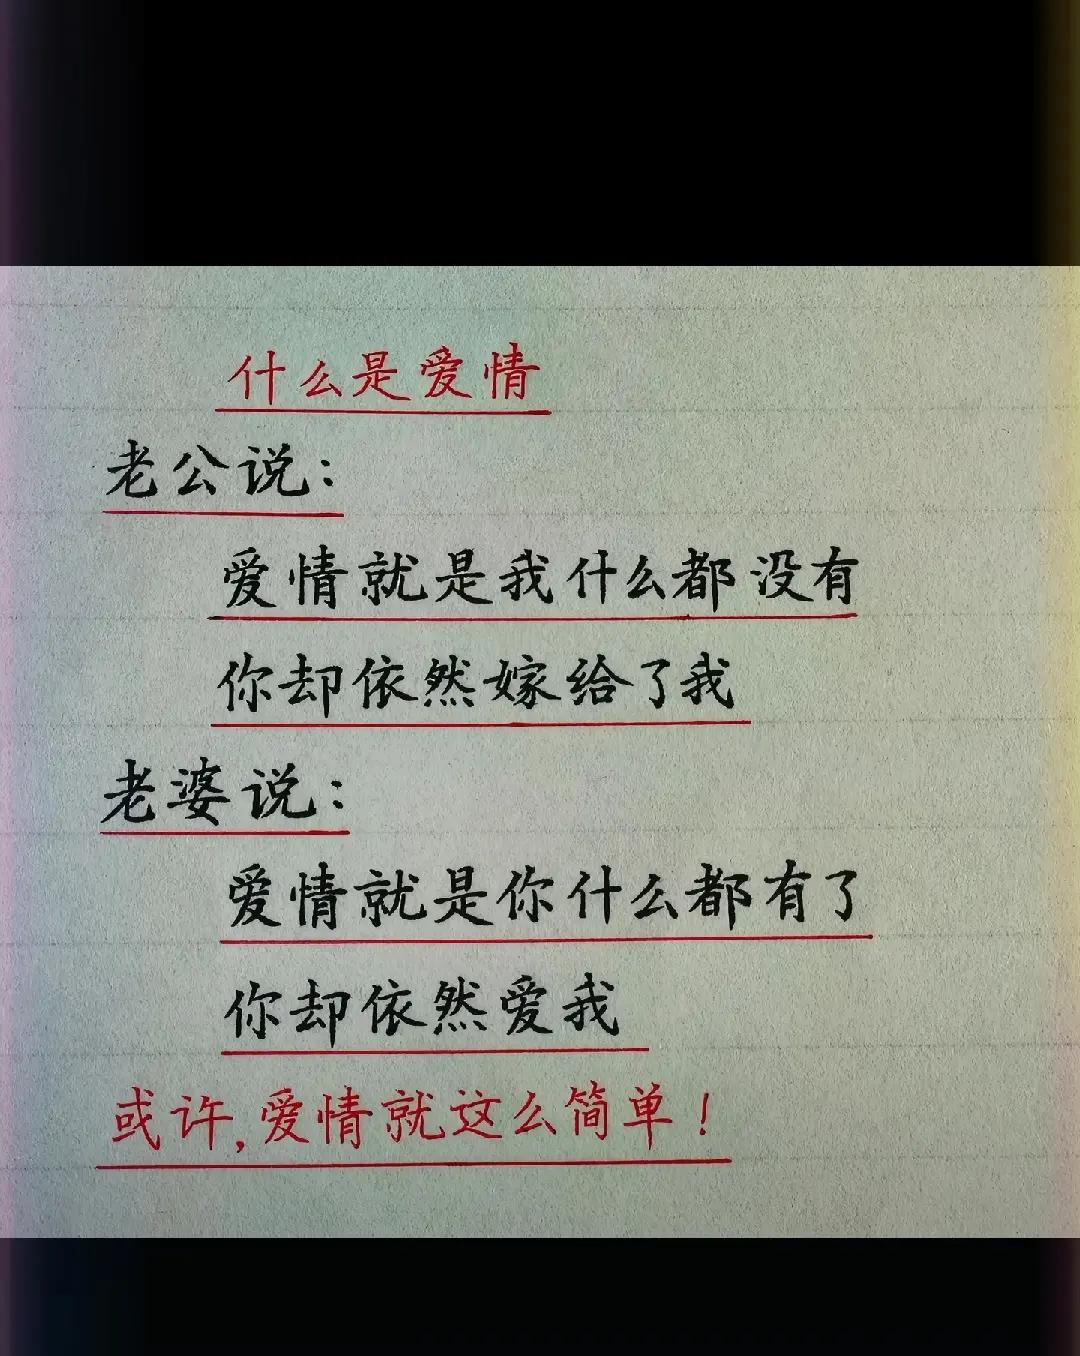 什么是爱情
老公说:
爱情就是我什么都没有
你却依然嫁给了我
老婆说:
爱情就是你什么都有了
你却依然爱我
或许,爱情就这么简单!